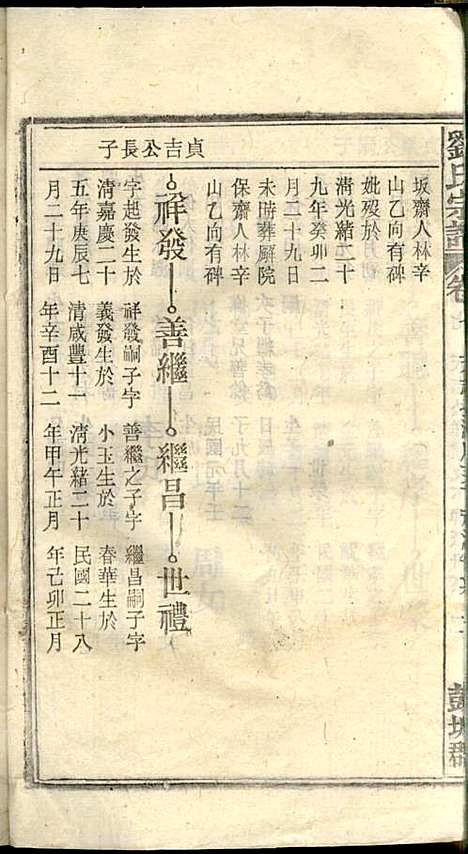 劉氏宗譜 卷
彭城郡
貞吉公長子
坂齋人林辛
山乙向有碑
妣歿於
清光緒二十
九年癸卯二
月二十九日
未時葬廨院
保齋人林辛
山乙向有碑
祥發 善繼 繼昌 世禮
字起發生於
清嘉慶二十
五年庚辰七
月二十九日
祥發嗣子字
義發生於
清咸豐十一
年辛酉十二
善繼之子字
小玉生於
清光緒二十
年甲午正月
繼昌嗣子字
春華生於
民國二十八
年己卯正月